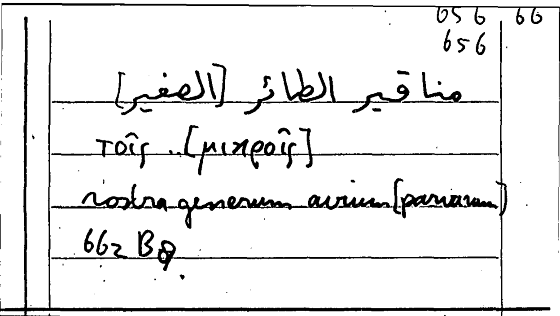 656 66
656
مناقير الطائر [الصغير]
τοῖς .. [μικροῖς]
rostra generum avium [parvarum]
66z B